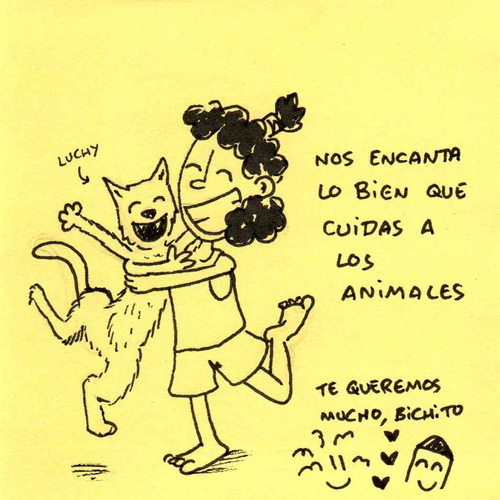 LUCHY
NOS ENCANTA
LO BIEN QUE
CUIDAS A
LOS
ANIMALES
TE QUEREMOS
MUCHO, BICHITO